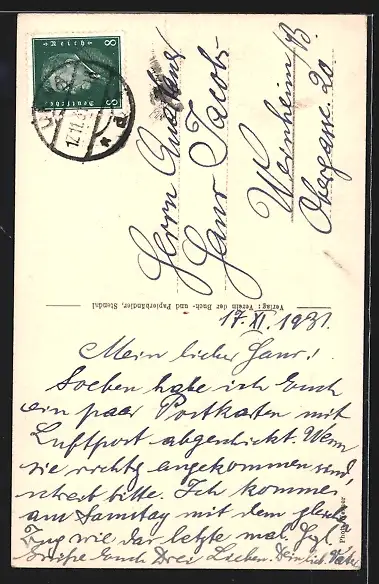 8 Deutsches Reich 8
17.11.31
Herrn
Hans Jacob
Weinheim /B.
Obergasse 20
Verlag: Verein der Buch- und Papierhändler, Stendal
17. XI. 1931.
Mein lieber Hans!
Soeben habe ich Euch
ein paar Postkarten mit
Luftpost abgeschickt. Wenn
sie richtig angekommen sind,
schreib bitte. Ich komme
am Samstag mit dem gleichen
Zug wie das letzte mal. Hzl.
Grüsse Euch Drei Lieben. Dein